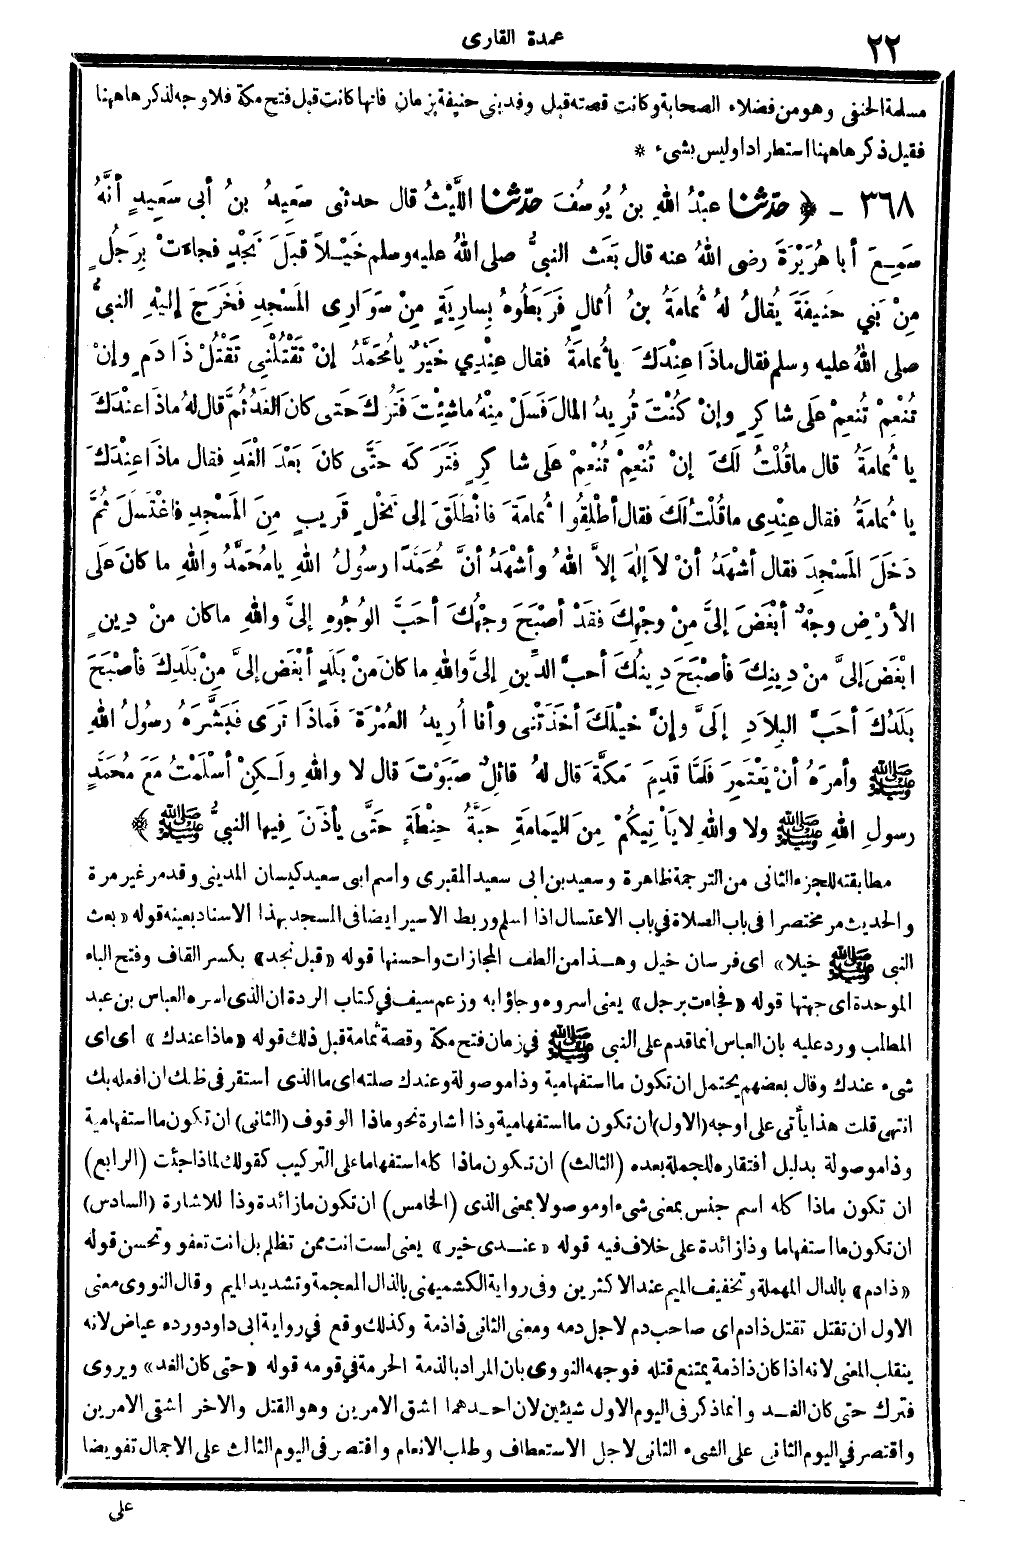 ٢٢
عمدة القارى
مسلمة الحنفى وهو من فضلاء الصحابة وكانت قصته قبل وفد بنى حنيفة بزمان فانها كانت قبل فتح مكة فلا وجه لذكرها ههنا
فقيل ذكرها ههنا استطرادا وليس بشىء *
٣٦٨ ـ ﴿ حدّثنا عبْدُ اللهِ بنُ يُوسُفَ حدّثنا اللّيْثُ قال حدثنى سَعِيدُ بنُ أبى سَعِيدٍ أنَّهُ
سَمِعَ أبا هُرَيْرَةَ رضى اللهُ عنه قال بَعَثَ النبىُّ صلى اللهُ عليه وسلم خَيْلاً قِبَلَ نَجْدٍ فجاءَتْ بِرَجُلٍ
مِنْ بَنِي حَنِيفَةَ يُقالُ لهُ ثُمامَةُ بنُ أُثالٍ فَرَبَطُوهُ بِسارِيَةٍ مِنْ سَوَارِى المَسْجِدِ فَخَرَجَ إليْهِ النبىُّ
صلى اللهُ عليه وسلم فقال ماذَا عِنْدَكَ يا ثُمامَةُ فقال عِنْدِي خَيْرٌ يا مُحَمَّدُ إنْ تَقْتُلْنِى تَقْتُلْ ذَا دَمٍ وإنْ
تُنْعِمْ تُنْعِمْ عَلَى شاكِرٍ وإنْ كُنْتَ تُرِيدُ المالَ فَسَلْ مِنْهُ ماشِئْتَ فَتُرِكَ حتى كان الغَدُ ثُمَّ قال لهُ ماذَا عندَكَ
يا ثُمامَةُ قال ما قُلْتُ لَكَ إنْ تُنْعِمْ تُنْعِمْ عَلَى شاكِرٍ فَتَرَكَه حتَّى كانَ بَعْدَ الْغَدِ فقال ماذَا عِنْدَكَ
يا ثُمامَةُ فقال عِنْدِى ما قُلْتُ لَكَ فقال أطْلِقُوا ثُمامَةَ فانْطَلَقَ إلى نَخْلٍ قَرِيبٍ مِنَ المَسْجِدِ فاغْتَسَلَ ثُمَّ
دَخَلَ المَسْجِدَ فقال أشْهَدُ أنْ لاَ إلٰهَ إلاَّ اللهُ وأشْهَدُ أنَّ مُحَمَّدًا رسُولُ اللهِ يا مُحَمَّدُ واللهِ ما كانَ عَلَى
الأرْضِ وجْهٌ أبْغَضَ إلىَّ مِنْ وجْهِكَ فقَدْ أصْبَحَ وجْهُكَ أحَبَّ الوُجُوهِ إلىَّ واللهِ ما كان مِنْ دِينٍ
ابْغَضَ إلىَّ مِنْ دِينِكَ فأصْبَحَ دِينُكَ أحَبَّ الدِّينِ إلىَّ واللهِ ما كانَ مِنْ بَلَدٍ أبْغَضَ إلىَّ مِنْ بَلَدِكَ فأصْبَحَ
بَلَدُكَ أحَبَّ البِلاَدِ إلَىَّ وإنَّ خَيْلَكَ أخَذَتْنى وأنا أُرِيدُ العُمْرَةَ فَماذَا تَرَى فَبَشَّرَهُ رسُولُ اللهِ
ﷺ وأمَرَهُ أنْ يَعْتَمِرَ فَلَمَّا قَدِمَ مَكَّةَ قال لهُ قائِلٌ صَبَوْتَ قال لا واللهِ ولٰكِنْ أسْلَمْتُ مَعَ مُحَمَّدٍ
رسولِ اللهِ ﷺ ولا واللهِ لا يأْتِيكُمْ مِنَ اليَمامَةِ حَبَّةُ حِنْطَةٍ حَتَّى يأذَنَ فِيها النبىُّ ﷺ ﴾
مطابقته للجزء الثانى من الترجمة ظاهرة وسعيد بن ابى سعيد المقبرى واسم ابى سعيد كيسان المدينى وقد مر غير مرة
والحديث مر مختصرا فى باب الصلاة فى باب الاغتسال اذا اسلم وربط الاسير ايضا فى المسجد بهذا الاسناد بعينه قوله «بعث
النبى ﷺ خيلا» اى فرسان خيل وهذا من الطف المجازات واحسنها قوله «قبل نجد» بكسر القاف وفتح الباء
الموحدة اى جهتها قوله «فجاءت برجل» يعنى اسروه وجاؤا به وزعم سيف فى كتاب الردة ان الذى اسره العباس بن عبد
المطلب ورد عليه بان العباس انما قدم على النبى ﷺ فى زمان فتح مكة وقصة ثمامة قبل ذلك قوله «ماذا عندك» اى اى
شىء عندك وقال بعضهم يحتمل ان تكون ما استفهامية وذا موصولة وعندك صلته اى ما الذى استقر فى ظنك ان افعله بك
انتهى قلت هذا يأتى على اوجه (الاول) ان تكون ما استفهامية وذا اشارة نحو ماذا الوقوف (الثانى) ان تكون ما استفهامية
وذا موصولة بدليل افتقاره للجملة بعده (الثالث) ان تكون ماذا كله استفهاما على التركيب كقولك لماذا جئت (الرابع)
ان تكون ماذا كله اسم جنس بمعنى شىء او موصولا بمعنى الذى (الخامس) ان تكون ما زائدة وذا للاشارة (السادس)
ان تكون ما استفهاما وذا زائدة على خلاف فيه قوله «عندى خير» يعنى لست انت ممن تظلم بل انت تعفو وتحسن قوله
«ذا دم» بالدال المهملة وتخفيف الميم عند الاكثرين وفى رواية الكشميهنى بالذال المعجمة وتشديد الميم وقال النووى معنى
الاول ان تقتل تقتل ذا دم اى صاحب دم لاجل دمه ومعنى الثانى ذا ذمة وكذلك وقع فى رواية ابى داود ورده عياض لانه
ينقلب المعنى لانه اذا كان ذا ذمة يمتنع قتله فوجهه النووى بان المراد بالذمة الحرمة فى قومه قوله «حتى كان الغد» ويروى
فترك حتى كان الغد وانما ذكر فى اليوم الاول شيئين لان احدهما اشق الامرين وهو القتل والاخر اشق الامرين
واقتصر فى اليوم الثانى على الشىء الثانى لاجل الاستعطاف وطلب الانعام واقتصر فى اليوم الثالث على الاجمال تفويضا
على